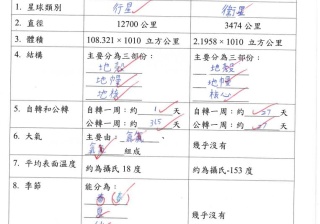 1. 星球類別 行星 衛星
2. 直徑 12700 公里 3474 公里
3. 體積 108.321 × 1010 立方公里 2.1958 × 1010 立方公里
4. 結構 主要分為三部份： 主要分為三部份：
地殼 地殼
地幔 地幔
地核 核心
5. 自轉和公轉 自轉一周：約 1 天 自轉一周：約 27 天
公轉一周：約 365 天 公轉一周：約 27 天
6. 大氣 主要由： 幾乎沒有
組成
7. 平均表面溫度 約為攝氏 18 度 約為攝氏-153 度
8. 季節 能分為：
春
夏 幾乎沒有